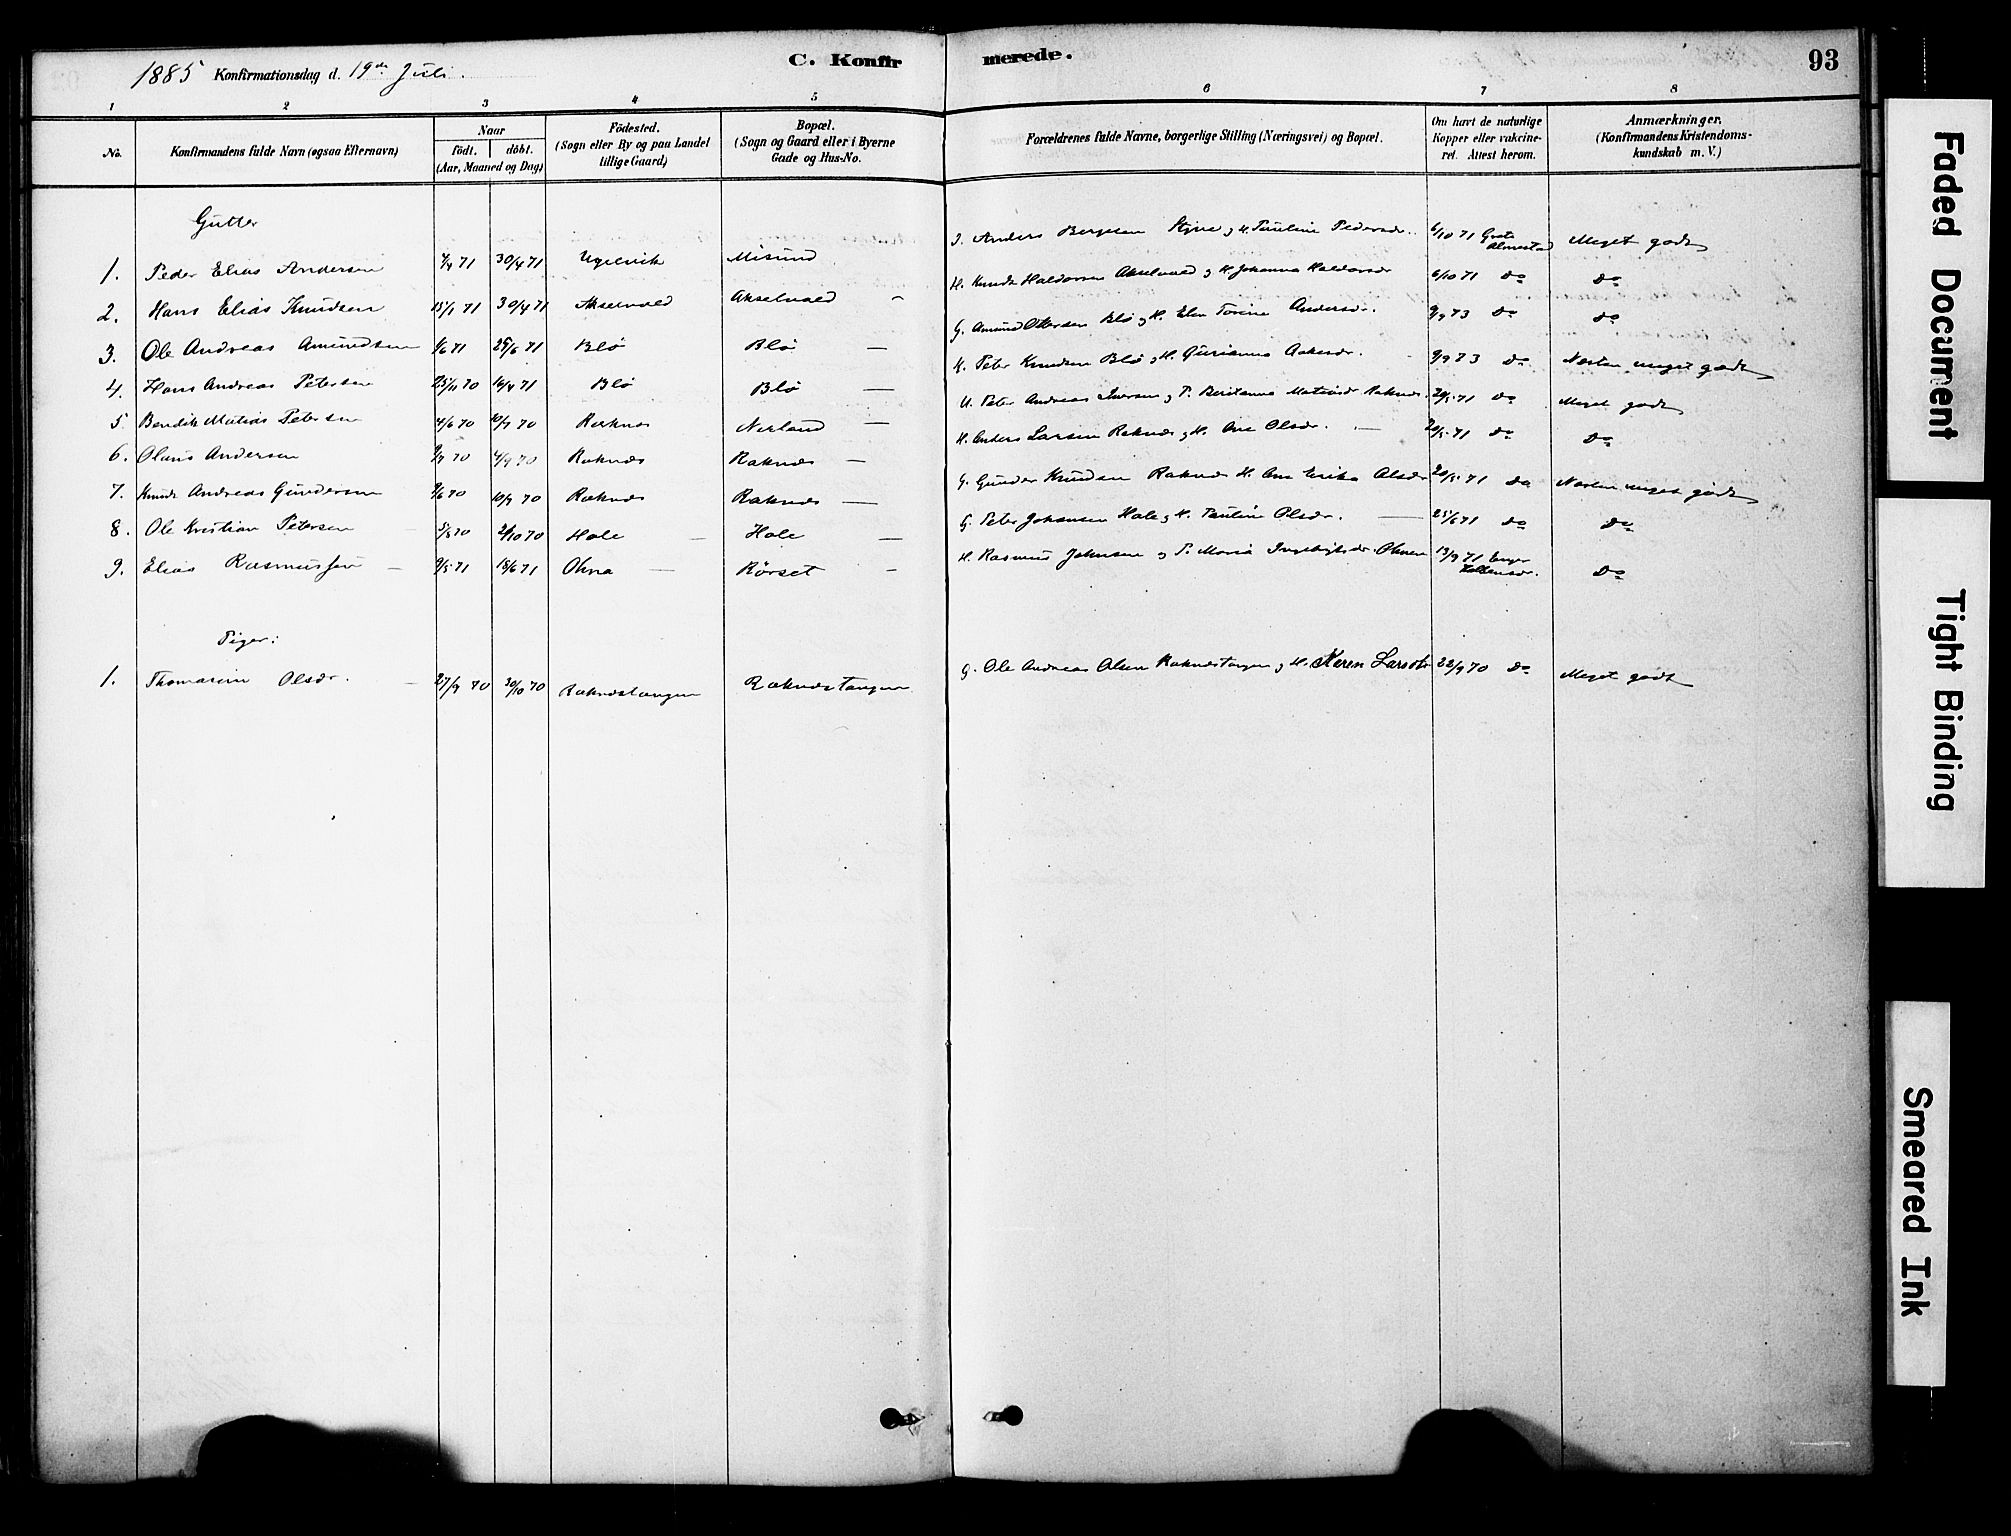 1885 Konfirmationsdag d. 19de Juli.
C. Konfirmerede.
93
1 2 3 4 5 6 7 8
No.
Konfirmandens fulde Navn (ogsaa Efternavn)
Naar
födt. döbt.
(Aar, Maaned og Dag)
Födested.
(Sogn eller By og paa Landet
tillige Gaard)
Bopæl.
(Sogn og Gaard eller i Byerne
Gade og Hus-No.
Forældrenes fulde Navne, borgerlige Stilling (Næringsvei) og Bopæl.
Om havt de naturlige
Kopper eller vakcine-
ret. Attest herom.
Anmærkninger.
(Konfirmandens Kristendoms-
kundskab m. V.)
Gutter
1. Peder Elias Andersen 30/4 71 Ugelvik Misund Anders Bergesen og H. Pauline Pedersdr. 6/10 71 Meget godt
2. Hans Elias Knudsen 15/1 71 30/4 71 Akselvold Akselvold H. Knud Haldorsen Akselvold og H. Johanna Haldorsdr 6/10 71 Do Do
3. Ole Andreas Amundsen 1/6 71 25/6 71 Blø Blø — G. Amund Ottersen Blø og H. Elen Torine Andersdr. 9/9 73 Do Do
4. Hans Andreas Petersen 25/11 70 16/4 71 Blø Blø — H. Peter Knudsen Blø og H. Gurianna Aakesdr. 9/9 73 Do Næsten meget godt
5 Bendik Matias Petersen 4/6 70 10/7 70 Raknes Nerland — U. Peter Andreas Iversen og P. Beritanna Matiasdr Raknes. 20/5 71 Do Meget godt
6. Olaus Andersen 4/9 70 Raknes Raknes — H. Anders Larsen Raknes og H. Ane Olsdr. — 20/5 71 Do Do
7. Knud Andreas Gundersen 9/6 70 10/7 70 Raknes Raknes — G. Gunder Knudsen Raknes H. Ane Erika Olsdr 20/5 71 Do Næsten meget godt
8. Ole Kristian Petersen 5/8 70 2/10 70 Hole — Hole — G. Peter Johansen Hole og H. Pauline Olsdr. — 25/6 71 Do Do
9. Elias Rasmussen — 9/5 71 18/6 71 Ohna — Rørset — H. Rasmus Johnsen og P. Maria Ingebrigtsdr. 13/9 71 Do
Piger:
1. Thomasine Olsdr. — 27/9 70 30/10 70 Raknestangen Raknestangen G. Ole Andreas Olsen Raknestangen og H. Karen Larsdtr 22/9 70 Do Meget godt
Faded Document
Tight Binding
Smeared Ink